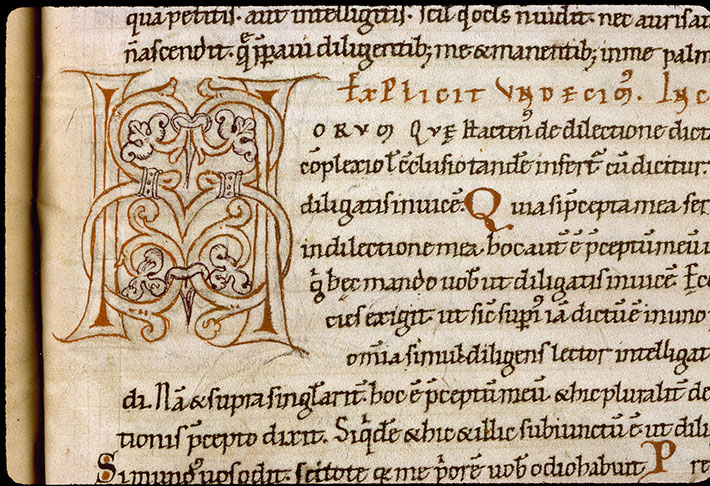 qua petitis. aut intelligitis. scil qđ ocls n̄ uidit. nec auris aí
n̄ ascendit. q̄ p̄paui diligentib; me & manentib; in me palm
Explicit undecim⁹. Inc
H
orum quę Hacten̄ de dilectione dict
cōplexio l̄ c̄clusio tandē infert̄ cū dicitur.
diligatis inuicē. Quia si p̄cepta mea ser
in dilectione mea. hoc aut̄ ē p̄ceptū meū
hęc mando uob̄ ut diligatis inuicē. Ecc
exigit. ut sic̄ sup̄i⁹ iā dictū ē in uno
om̄ia simul diligens lector intelligat
di. Nā & supra singl̄arit̄. hoc ē p̄ceptū meū. & hic pluralit̄ de
tionis p̄cepto dixit. Siqđe & hic & illic subiunctū ē ut dili
Si mund⁹ uos odit. scitote qđ me p̄orē uob̄ odio habuit. P re